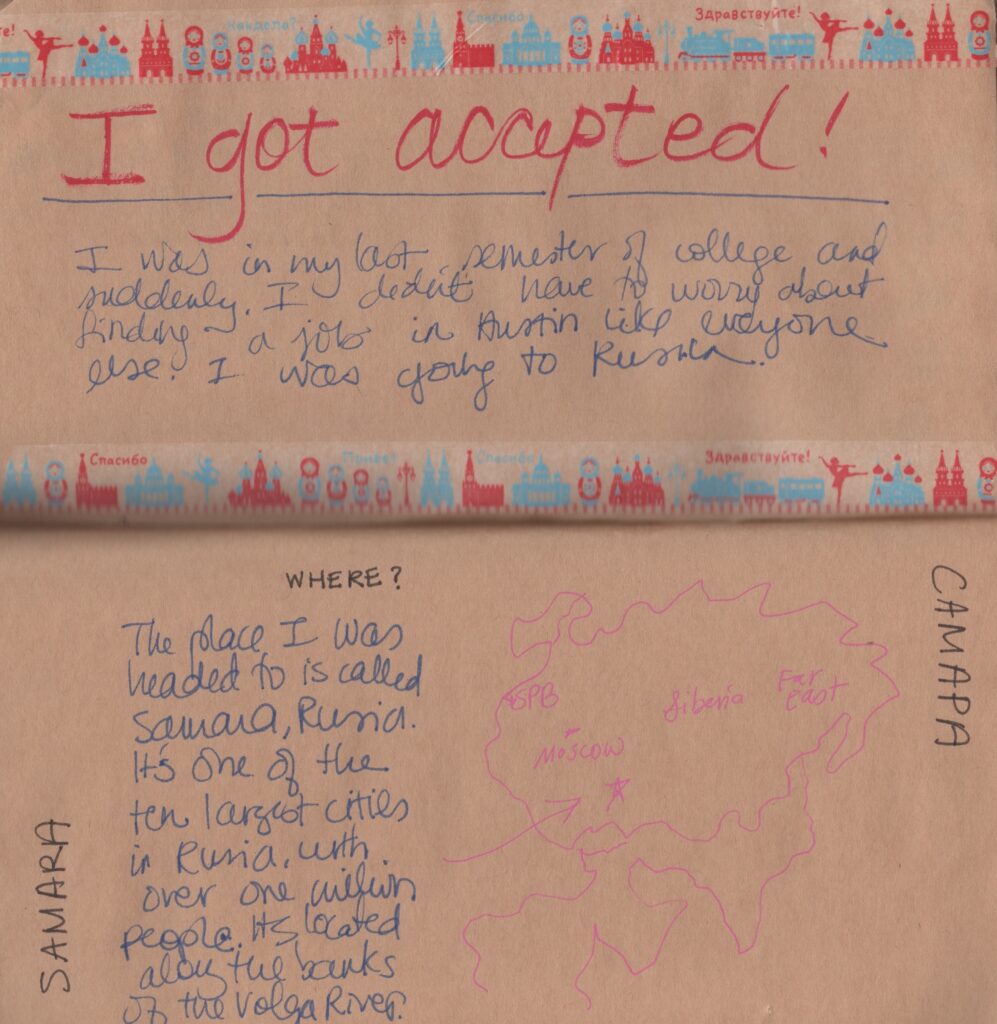 те!
Спасибо
Здравствуйте!
I got accepted!
I was in my last semester of college and
suddenly, I didn't have to worry about
finding a job in Austin like everyone
else. I was going to Russia.
Спасибо
Привет
Спасибо
Здравствуйте!
WHERE?
The place I was
headed to is called
Samara, Russia.
It's one of the
ten largest cities
in Rusia, with
over one million
people. Its located
along the banks
of the Volga River.
SPB
Moscow
Siberia
Far
east
САМАРА
SAMARA